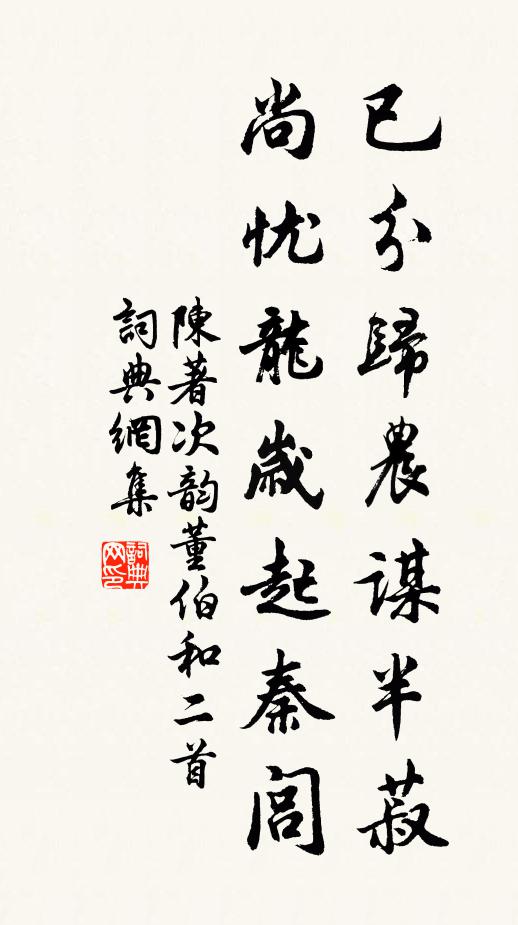 已分歸農謀半菽
尚忧龍歲起秦閭
陳著次韵董伯和二首
詞典網集
詞典网印